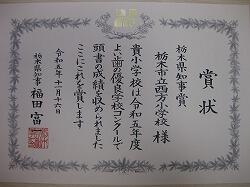 賞状
栃木県知事賞
栃木市立西方小学校 様
貴小学校は令和五年度
よい歯の優良学校コンクールで
頭書の成績を収められました
ここにこれを賞します
令和五年十一月十六日
栃木県知事 福田富一